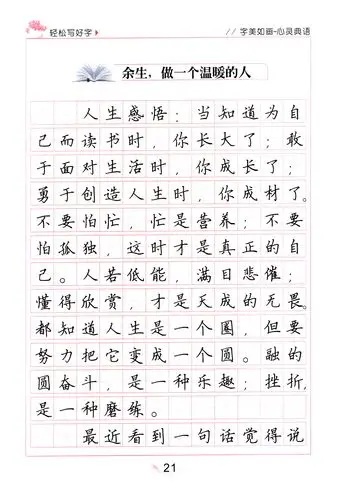 轻松写好字
// 字美如画-心灵典语
余生，做一个温暖的人
人生感悟：当知道为自
己而读书时，你长大了；敢
于面对生活时，你成长了；
勇于创造人生时，你成材了。
不要怕忙，忙是营养；不要
怕孤独，这时才是真正的自
己。人若低能，满目悲催；
懂得欣赏，才是天成的无畏。
都知道人生是一个圈，但要
努力把它变成一个圆。融的
圆奋斗，是一种乐趣；挫折，
是一种磨练。
最近看到一句话觉得说
21